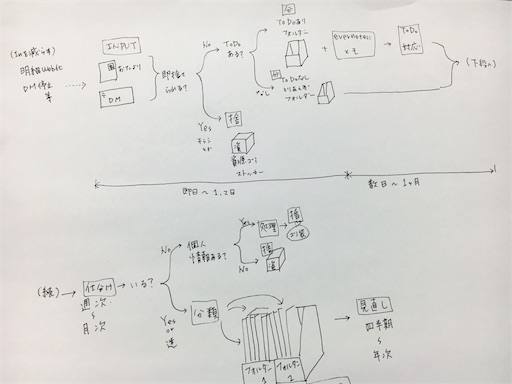 (INを減らす)
明細Web化
DM停止
等
INPUT
おたより
DM
即捨て
られる?
No
ToDo
ある?
Yes
チラシ
など
捨
資源ゴミ
ストッカー
分
ToDoあり
フォルダー
+
evernoteに
メモ
ToDo
対応
なし
分
ToDoなし
とりあえず
フォルダー
(下段へ)
即日〜1,2日
数日〜1ヶ月
(続)
仕分け
週次
〜
月次
いる?
No
個人
情報ある?
Yes
処理
捨
ゴミ袋
No
捨
資
Yes
or
迷
分類
フォルダー
1
フォルダー
2
見直し
四半期
〜
年次